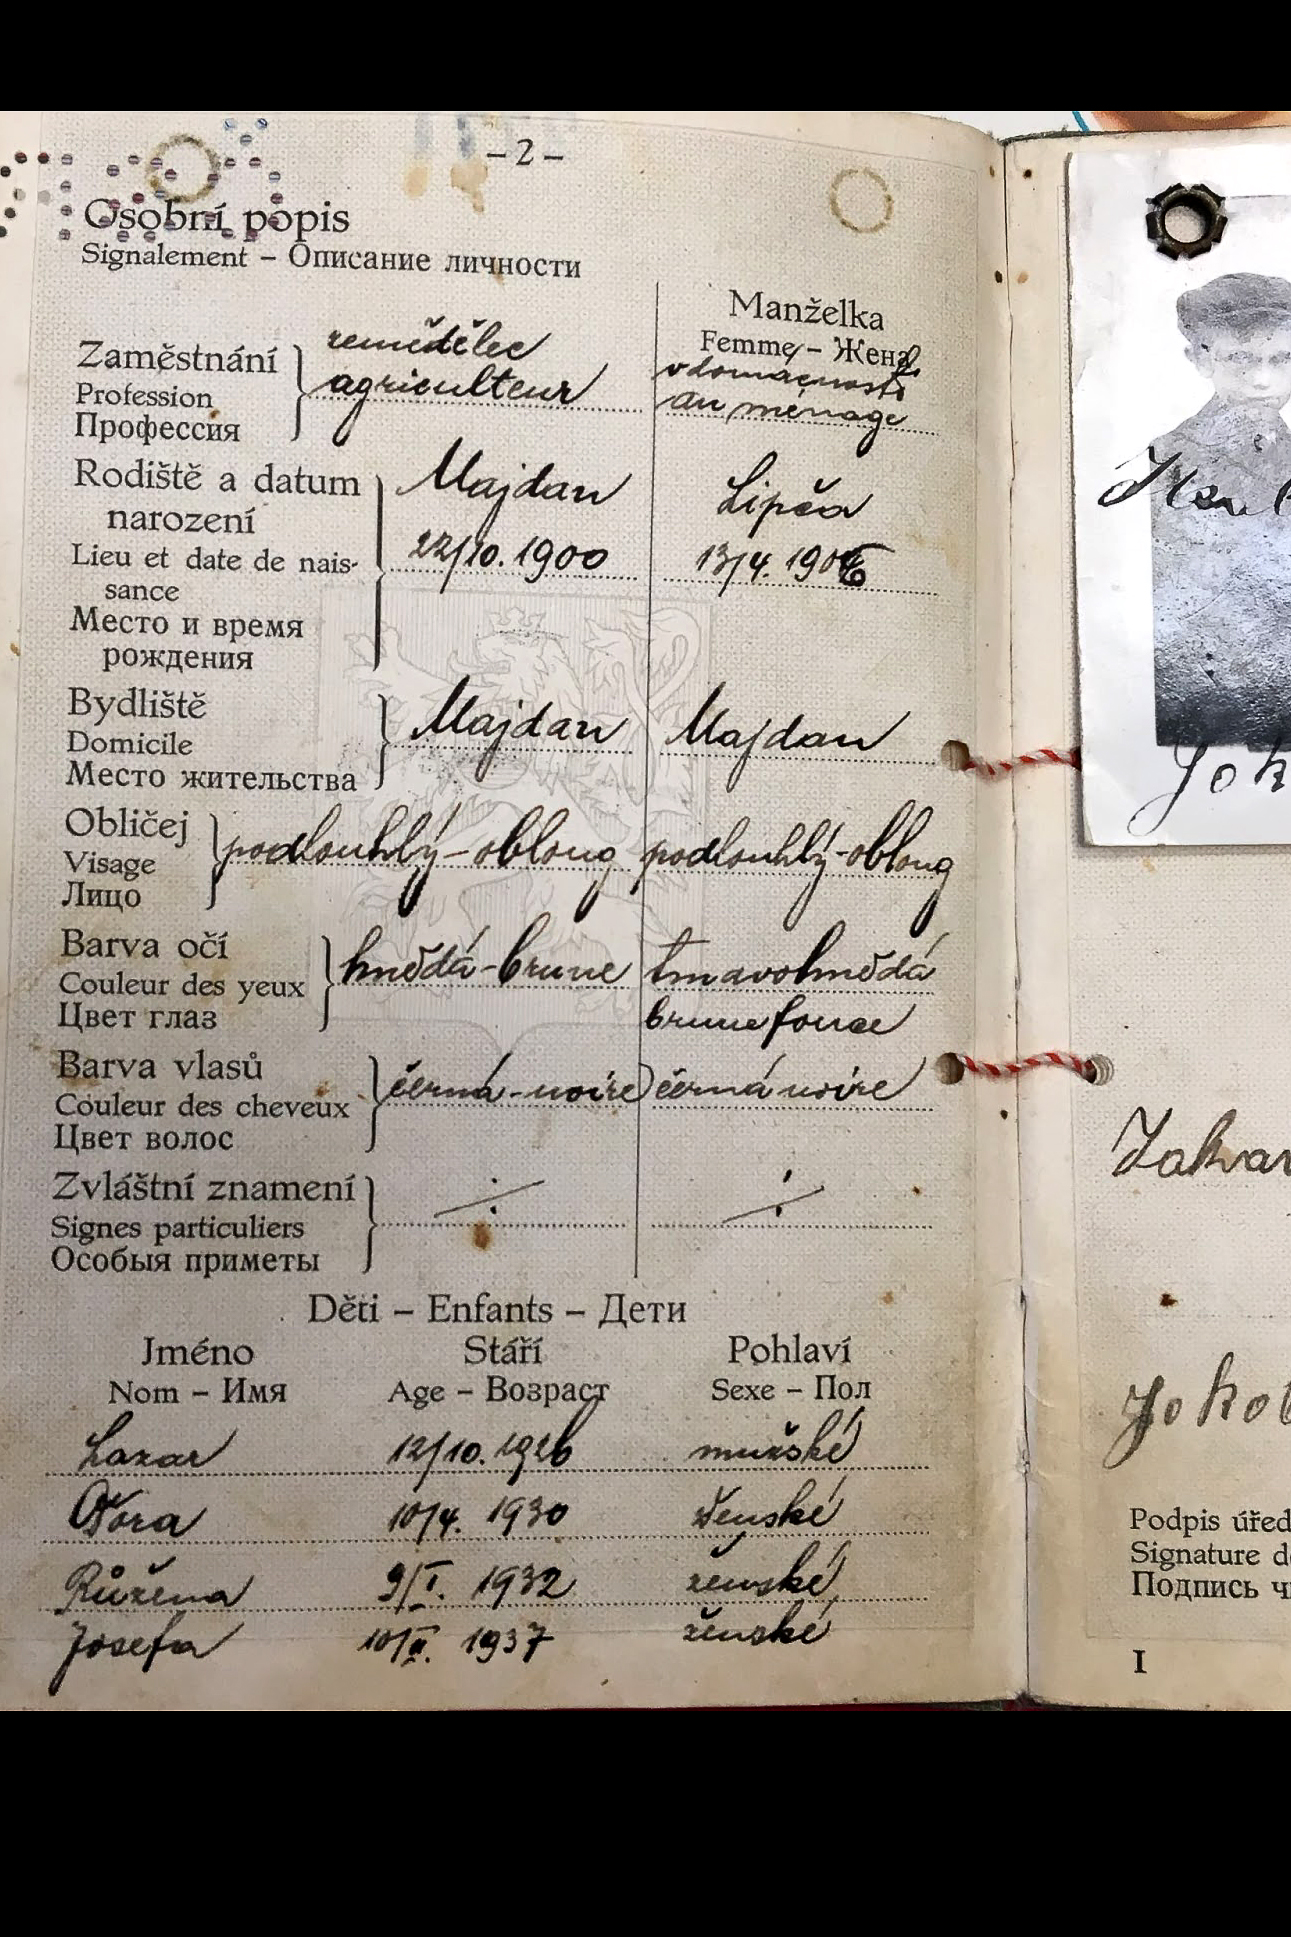 – 2 –
Osobní popis
Signalement – Описание личности
Manželka
Femme – Жена
Zaměstnání
Profession
Профессия
zemědělec
agriculteur
v domácnosti
au ménage
Rodiště a datum
narození
Lieu et date de nais-
sance
Место и время
рождения
Majdan
22/10. 1900
Lipča
13/4. 1906
Bydliště
Domicile
Место жительства
Majdan
Majdan
Obličej
Visage
Лицо
podlouhlý – oblong
podlouhlý – oblong
Barva očí
Couleur des yeux
Цвет глаз
hnědá – brune
tmavohnědá
brune fonce
Barva vlasů
Couleur des cheveux
Цвет волос
černá – noire
černá noire
Zvláštní znamení
Signes particuliers
Особыя приметы
Děti – Enfants – Дети
Jméno Stáří Pohlaví
Nom – Имя Age – Возраст Sexe – Пол
Lazar 12/10. 1926 mužské
10/4. 1930 ženské
Růžena 9/I. 1932 ženské
Josefa 10/II. 1937 ženské
Podpis úřed
Signature d
Подпись ч
I